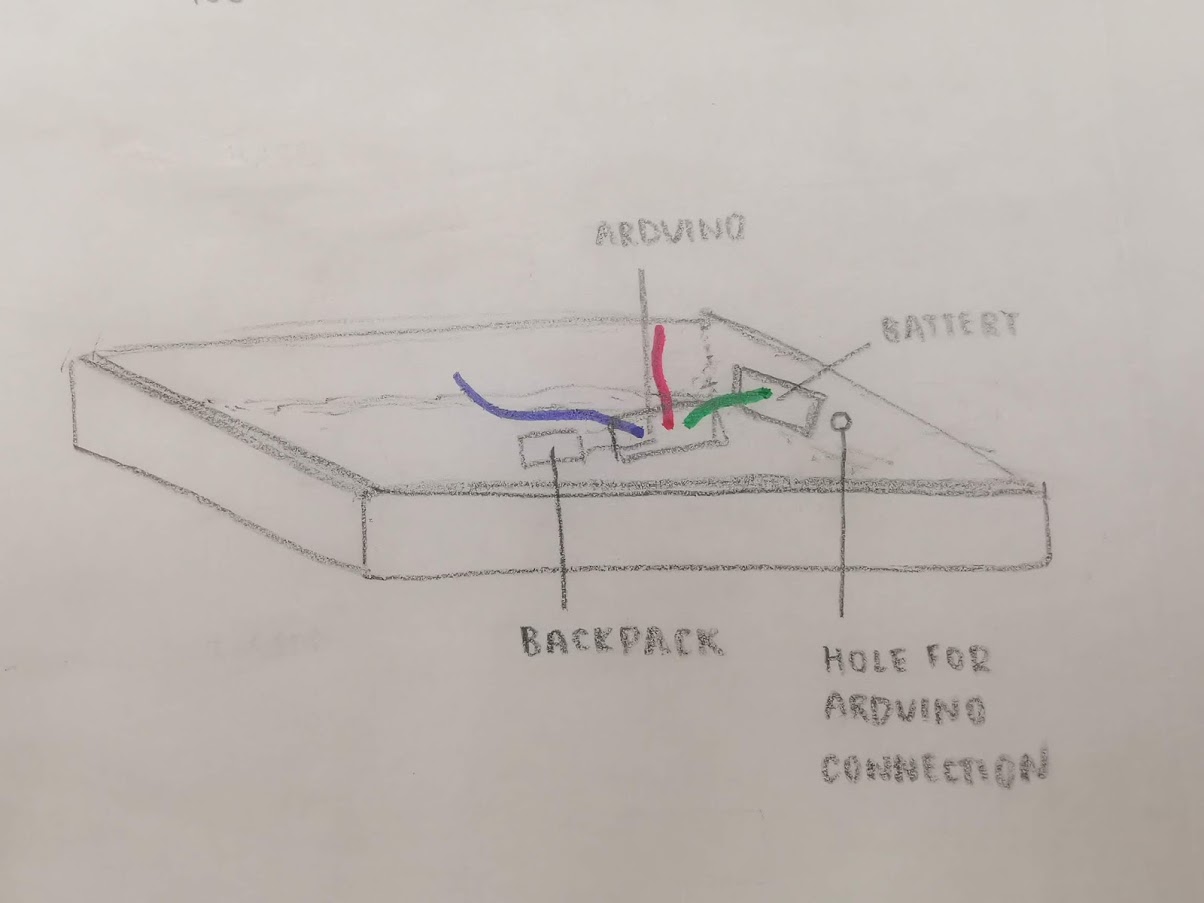 ARDUINO
BATTERY
BACKPACK
HOLE FOR
ARDUINO
CONNECTION